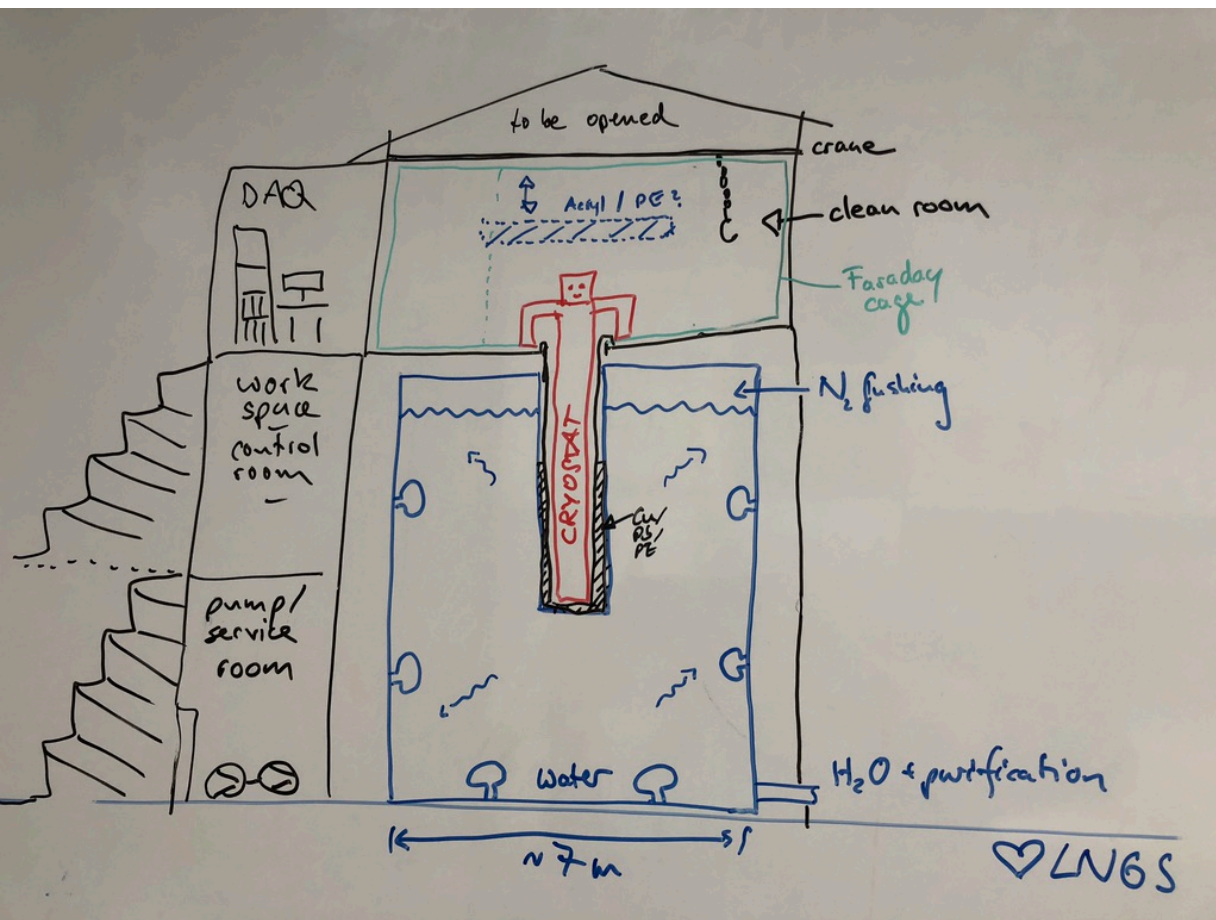 to be opened
crane
DAQ
Acryl / PE?
clean room
Faraday
cage
work
space
control
room
N₂ flushing
CRYOSTAT
Cu/
PS/
PE
pump/
service
room
water
H₂O + purification
~7m
♡LNGS